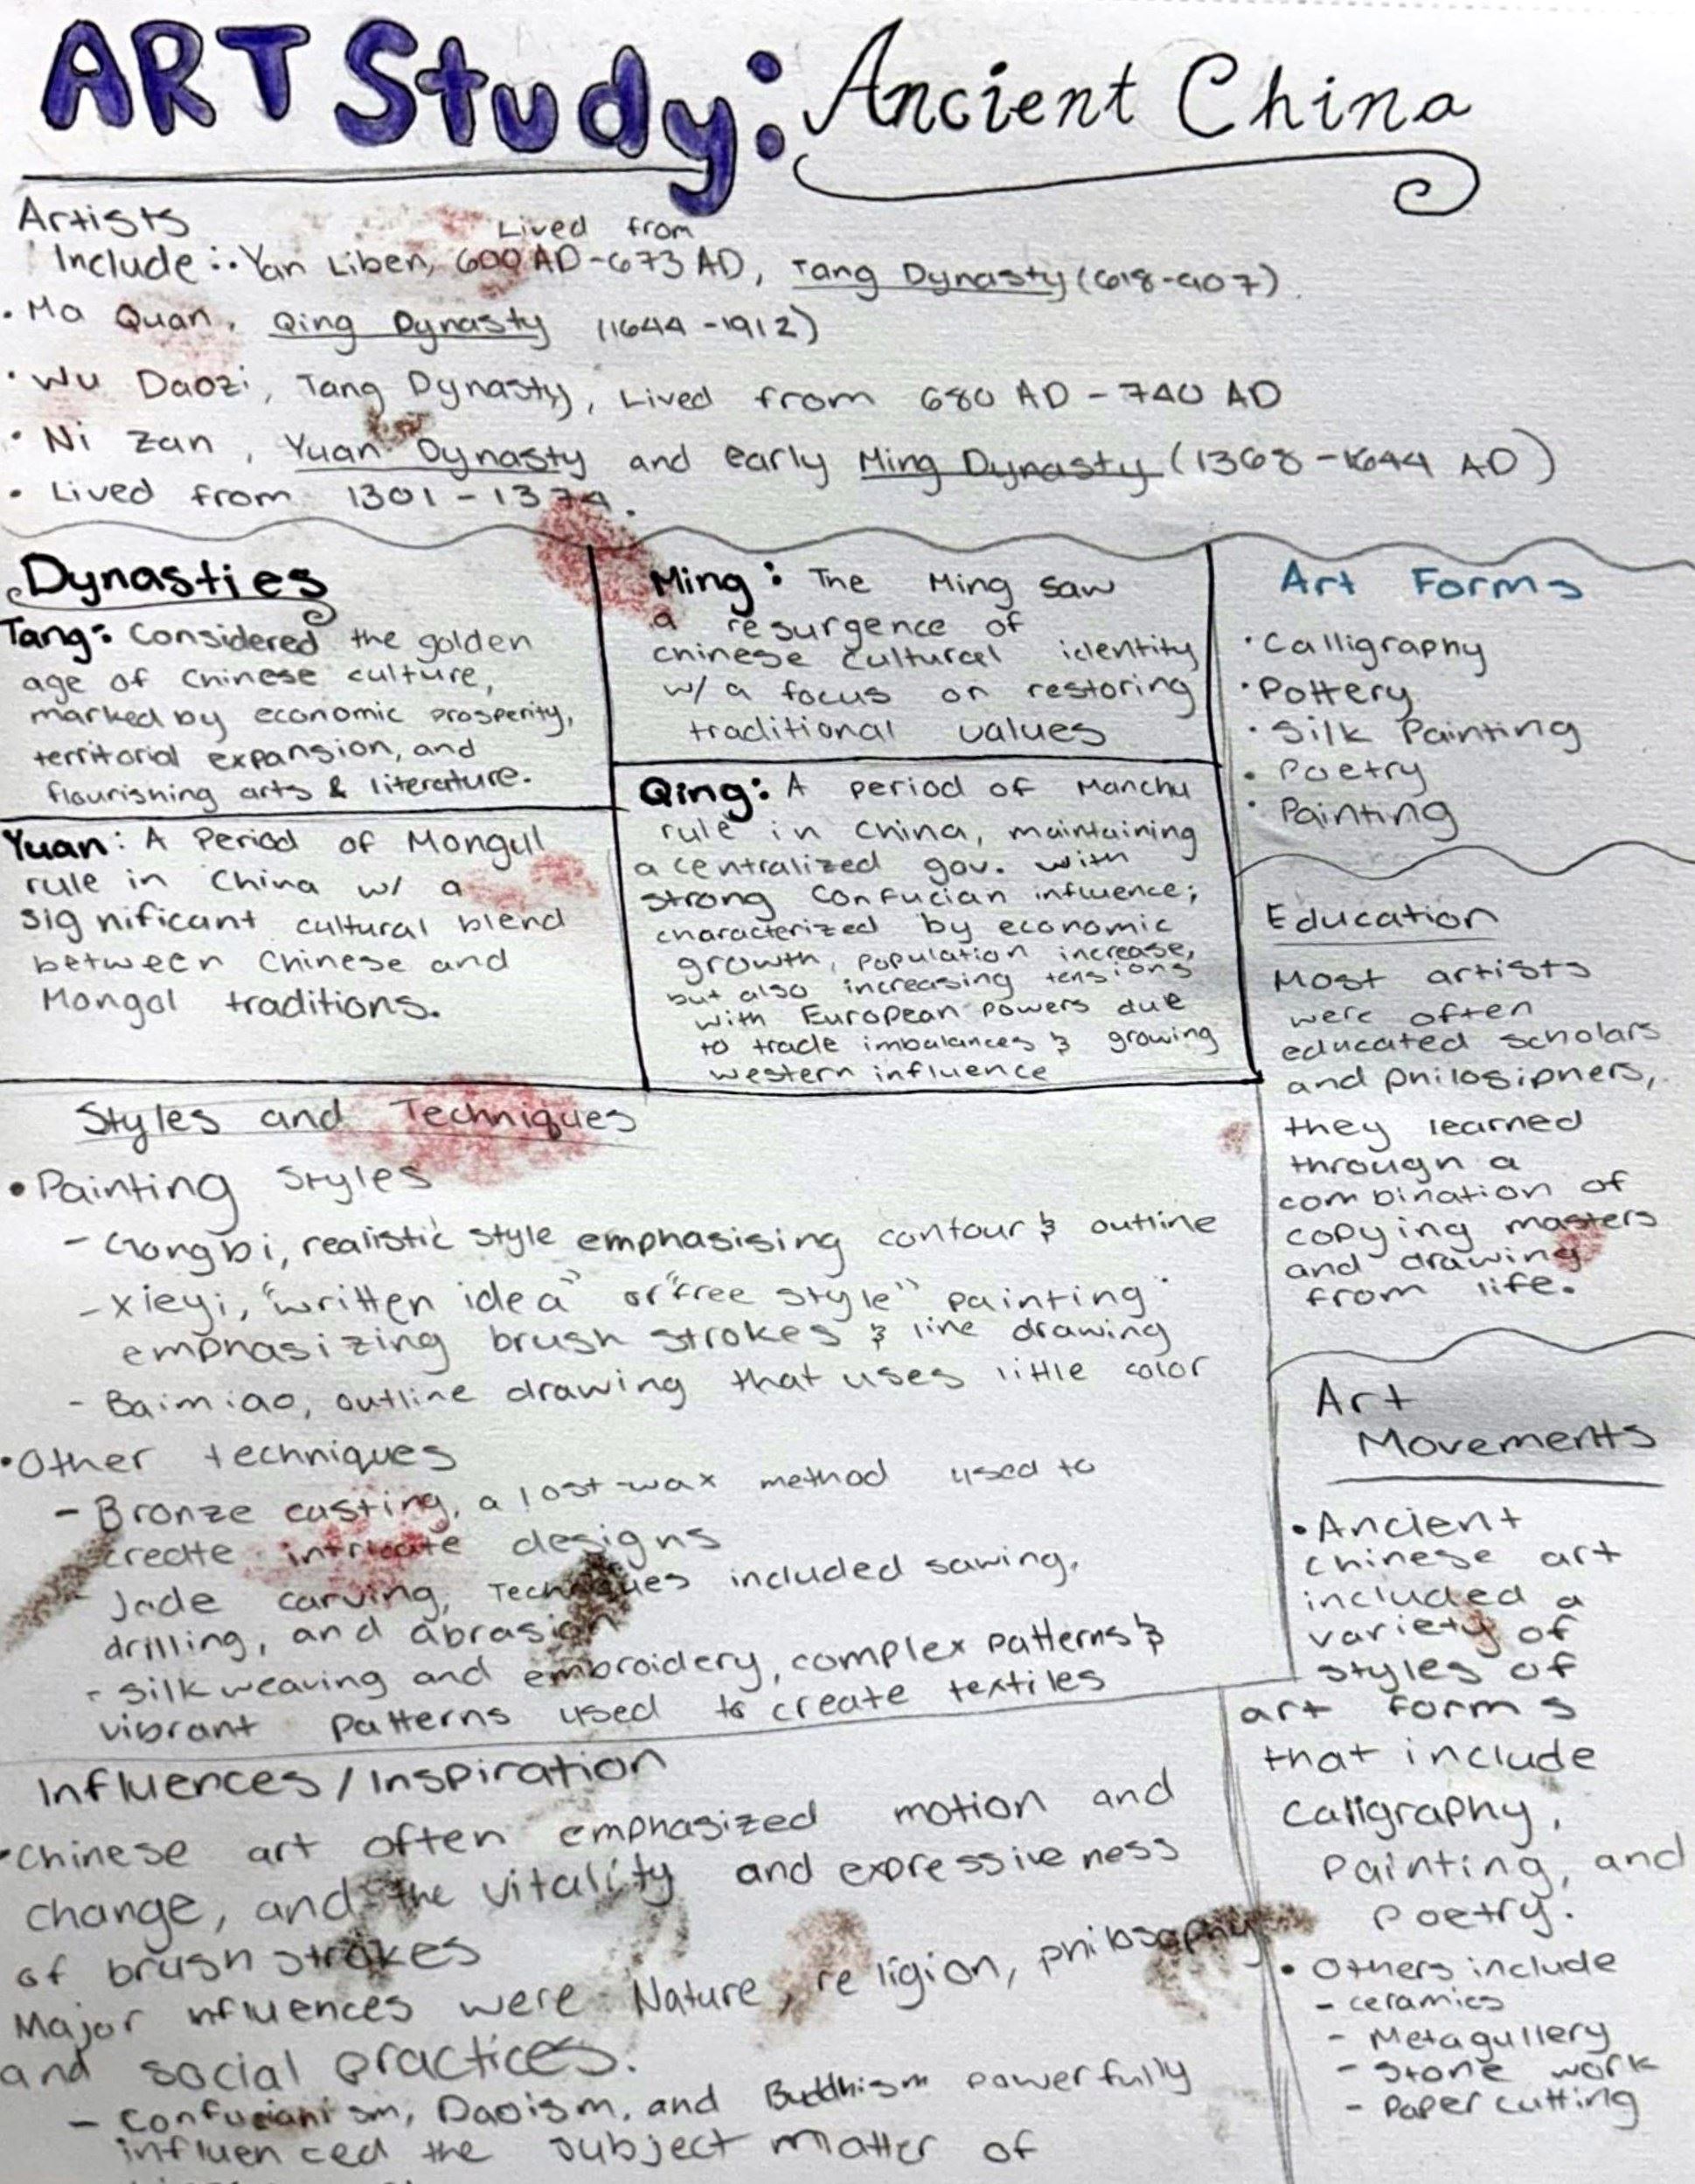 ART Study: Ancient China
Artists
Lived from
Include: · Yan Liben, 600 AD-673 AD, Tang Dynasty (618-907).
· Ma Quan, Qing Dynasty (1644-1912)
· Wu Daozi, Tang Dynasty, Lived from 680 AD - 740 AD
· Ni Zan, Yuan Dynasty and early Ming Dynasty (1368-1644 AD)
· Lived from 1301-1374.
Dynasties
Tang: Considered the golden
age of Chinese culture,
marked by economic prosperity,
territorial expansion, and
flourishing arts & literature.
Yuan: A Period of Mongul
rule in China w/ a
significant cultural blend
between Chinese and
Mongol traditions.
Ming: The Ming saw
a resurgence of
chinese cultural identity
w/ a focus on restoring
traditional values
Qing: A period of Manchu
rule in China, maintaining
a centralized gov. with
strong Confucian influence;
characterized by economic
growth, population increase,
but also increasing tensions
with European powers due
to trade imbalances & growing
western influence
Art Forms
· Calligraphy
· Pottery
· Silk Painting
· Poetry
· Painting
Education
Most artists
were often
educated scholars
and philosiphers,
they learned
through a
combination of
copying masters
and drawing
from life.
Styles and Techniques
• Painting Styles
- Gongbi, realistic style emphasising contour & outline
- xieyi, "written idea" or "free style" painting
emphasizing brush strokes & line drawing
- Baimiao, outline drawing that uses little color
• Other techniques
- Bronze casting, a lost-wax method used to
create intricate designs
- Jade carving, Techniques included sawing,
drilling, and abrasion
- Silk weaving and embroidery, complex patterns &
vibrant patterns used to create textiles
Art
Movements
• Ancient
chinese art
included a
variety of
styles of
art forms
that include
calligraphy,
painting, and
poetry.
• Others include
- ceramics
- Metagullery
- Stone work
- Paper cutting
Influences/Inspiration
· Chinese art often emphasized motion and
change, and the vitality and expressiveness
of brush strokes
Major nfluences were Nature, religion, philosophy
and social practices.
- Confucianism, Daoism, and Buddhism powerfully
influenced the subject matter of